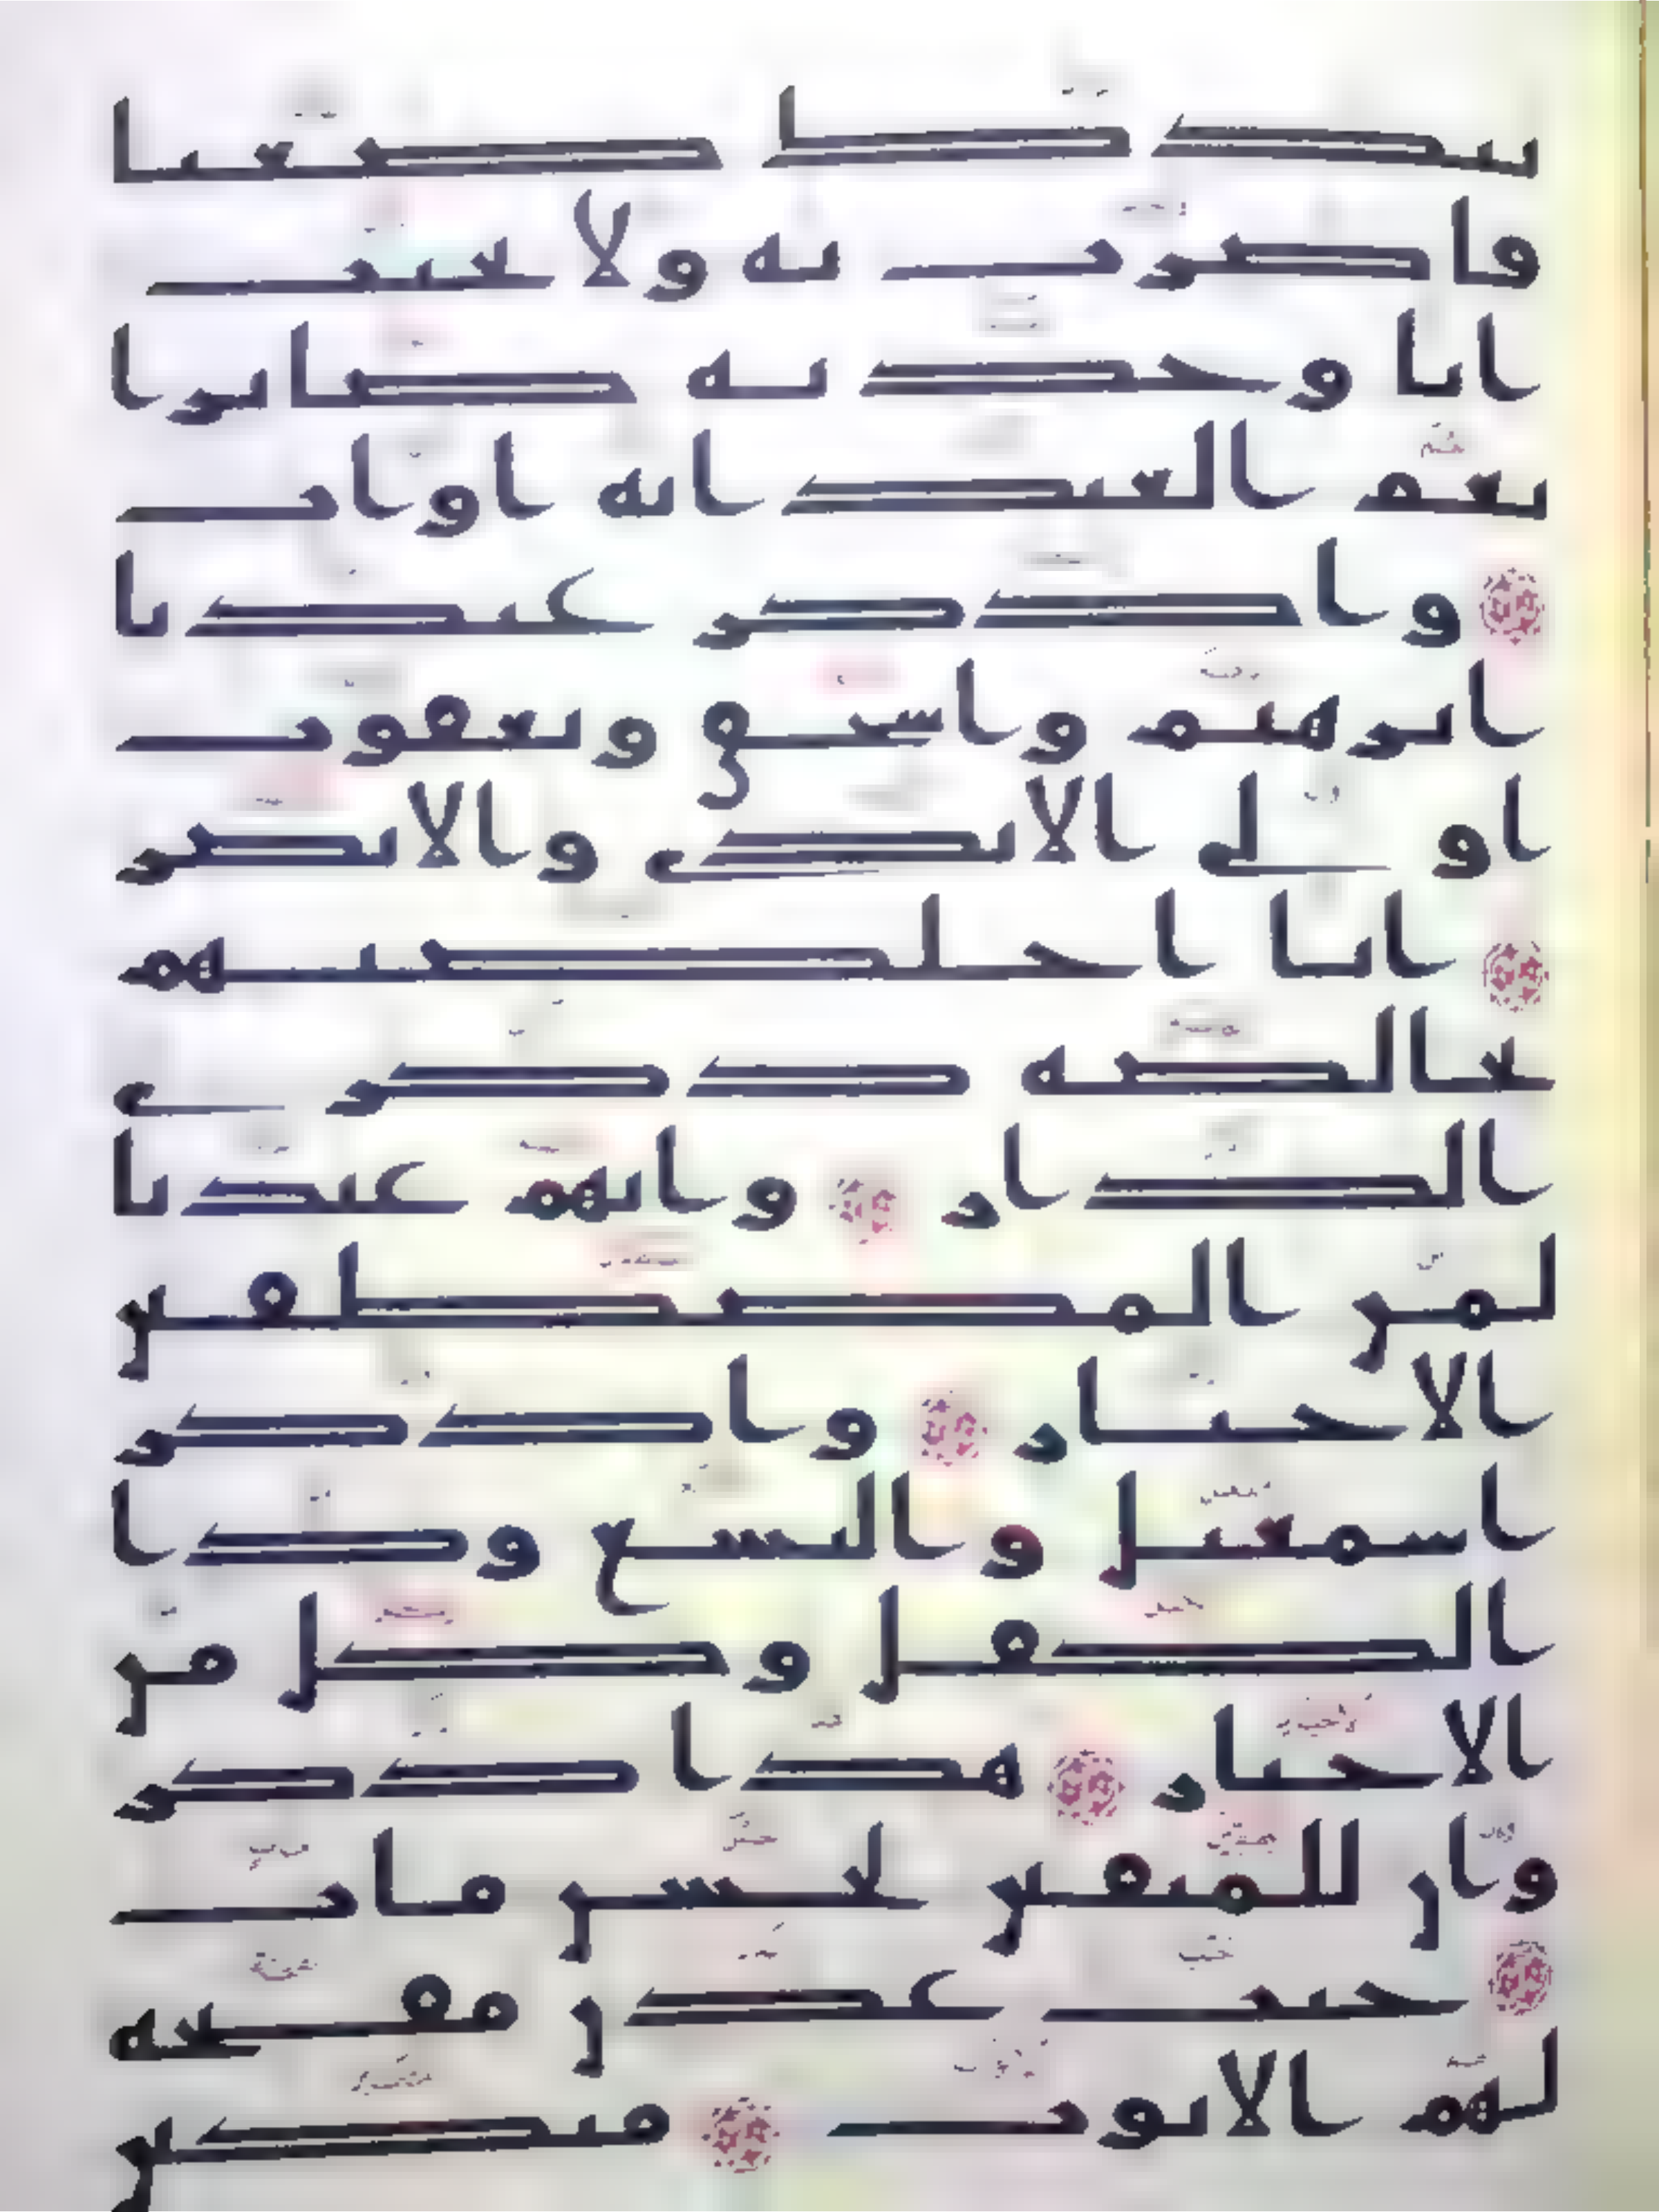 بيدك ضغثا
فاضرب به ولا تحنث
انا وجدنه صابرا
نعم العبد انه اواب
واذكر عبدنا
ابرهيم واسحق ويعقوب
اولي الايدي والابصر
انا اخلصنهم
بخالصة ذكرى
الدار وانهم عندنا
لمن المصطفين
الاخيار واذكر
اسمعيل واليسع وذا
الكفل وكل من
الاخيار هذا ذكر
وان للمتقين لحسن ماب
جنت عدن مفتحة
لهم الابوب متكين